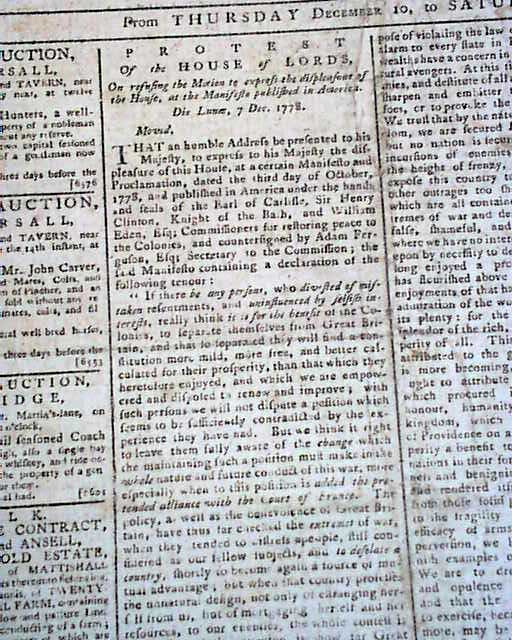 From THURSDAY December 10, to SATU
UCTION,
RSALL,
nd TAVERN, near
y next, at twelve
Hunters, a well-
perty of a nobleman
out any reserve.
two capital seasoned
of a gentleman now
three days before the
[6576
AUCTION,
RSALL,
nd TAVERN, near
the 14th instant, at
Mr. John Carver,
Mares, Colts, and
sold without any re
three days before the
[6553
AUCTION,
IDGE,
Martin's-lane, on
o'clock,
seasoned Coach
also a single bay
the property of a gen
had.
L K.
E CONTRACT,
nd ANSELL,
OLD ESTATE,
MATTISHALL
TWENTY
L FARM, containing
PROTEST
Of the HOUSE of LORDS,
On refusing the Motion to express the displeasure of
the House, at the Manifesto published in America.
Die Lunæ, 7 Dec. 1778.
Moved,
THAT an humble Address be presented to his
Majesty, to express to his Majesty the dis-
pleasure of this House, at a certain Manifesto and
Proclamation, dated the third day of October,
1778, and published in America under the hands
and seals of the Earl of Carlisle, Sir Henry
Clinton, Knight of the Bath, and William
Eden, Esq; Commissioners for restoring peace to
the Colonies, and countersigned by Adam Fer-
guson, Esq; Secretary to the Commission; the
said Manifesto containing a declaration of the
following tenour:
"If there be any persons, who divested of mis-
taken resentments, and uninfluenced by selfish in-
terests, really think it is for the benefit of the Co-
lonies, to separate themselves from Great Bri-
tain, and that so separated they will find a con-
stitution more mild, more free, and better cal-
culated for their prosperity, than that which they
heretofore enjoyed, and which we are empow-
ered and disposed to renew and improve; with
such persons we will not dispute a position which
seems to be sufficiently contradicted by the ex-
perience they have had. But we think it right
to leave them fully aware of the change which
the maintaining such a position must make in the
whole nature and future conduct of this war, more
especially when to this position is added the pre-
tended alliance with the Court of France. The
policy, as well as the benevolence of Great Bri-
tain, have thus far checked the extremes of war,
when they tended to distress a people, still con-
sidered as our fellow subjects, and to desolate a
country, shortly to become again a source of mu-
tual advantage; but when that country professes
the unnatural design, not only of estranging her-
self from us, but of mortgaging herself and her
resources, to our enemies, the whole contest is
pose of violating the law
alarm to every state in
wealth have a concern in
rural avengers. At this
mies, and destitute of all
sharpen and embitter
foes, or to provoke the
We trust that by the nat
dom, we are secured
but no nation is secure
incursions of enemies
the height of frenzy,
expose this country to
other outrages too
which are all contained
tremes of war and de
false, shameful, and
where we have no inter
upon by necessity to de
long enjoyed a pro
has flourished above
enjoyments of that h
admiration of the wo
its plenty: for the
splendor of the rich,
perity of all. This
attributed to the g
more becoming,
ught to attribute
which procured
honour, humanity
kingdom, which
of Providence on a
perity a benefit to
nations in their for
ness and benignit
and rendered
from those solid
to the fragility
efficacy of arms
perversion, we b
with examples o
We are to dre
and opulence
and that the
to exercise, bec